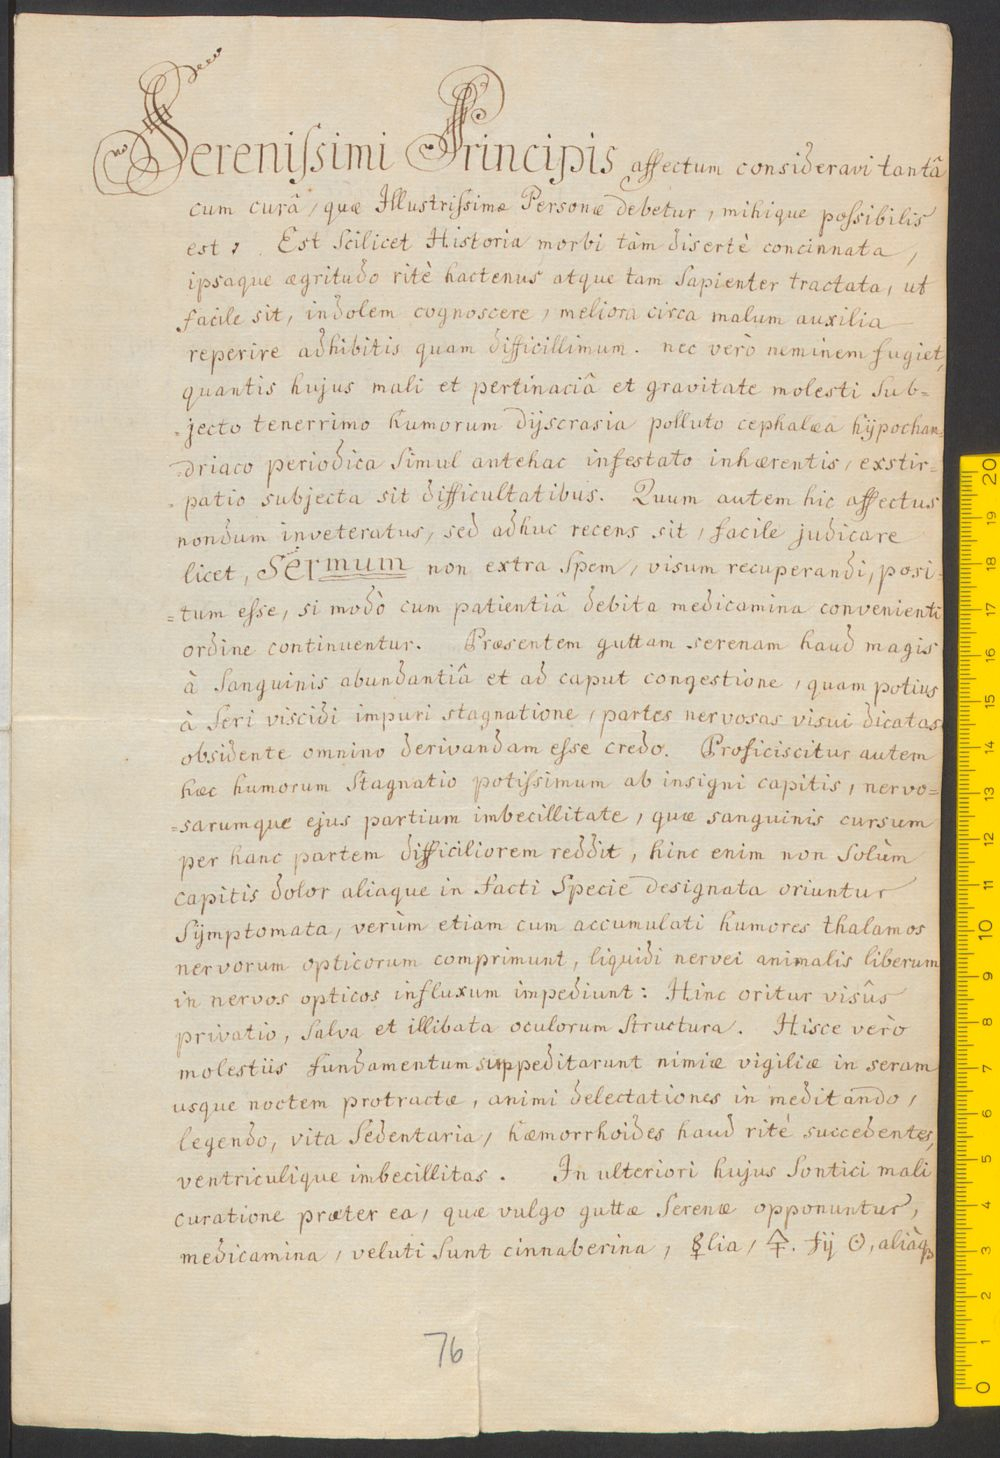 Serenissimi Principis affectum consideravi tantâ
cum curâ, quæ Illustrissimæ Personæ debetur, mihique possibilis
est. Est scilicet Historia morbi tàm disertè concinnata,
ipsaque ægritudo ritè hactenus atque tam sapienter tractata, ut
facile sit, indolem cognoscere, meliora circa malum auxilia
reperire adhibitis quam difficillimum. nec verò neminem fugiet,
quantis hujus mali et pertinaciâ et gravitate molesti sub=
=jecto tenerrimo humorum dyscrasia polluto cephalæa hÿpochan=
=driaco periodica simul antehac infestato inhærentis, exstir=
=patio subjecta sit difficultatibus. Quum autem hic affectus
nondum inveteratus, sed adhuc recens sit, facile judicare
licet, Sermum non extra spem, visum recuperandi, posi=
=tum esse, si modò cum patientiâ debita medicamina convenienti
ordine continuentur. Præsentem guttam serenam haud magis
à sanguinis abundantiâ et ad caput congestione, quam potius
à seri viscidi impuri stagnatione, partes nervosas visui dicatas
obsidente omnino derivandam esse credo. Proficiscitur autem
hæc humorum stagnatio potissimum ab insigni capitis, nervo=
=sarumque ejus partium imbecillitate, quæ sanguinis cursum
per hanc partem difficiliorem reddit, hinc enim non solùm
capitis dolor aliaque in facti specie designata oriuntur
sÿmptomata, verùm etiam cum accumulati humores thalamos
nervorum opticorum comprimunt, liquidi nervei animalis liberum
in nervos opticos influxum impediunt: Hinc oritur visûs
privatio, salva et illibata oculorum structura. Hisce verò
molestiis fundamentum suppeditarunt nimiæ vigiliæ in seram
usque noctem protractæ, animi delectationes in meditando,
legendo, vita sedentaria, hæmorrhoides haud ritè succedentes,
ventriculique imbecillitas. In ulteriori hujus sontici mali
curatione præter ea, quæ vulgo guttæ serenæ opponuntur,
medicamina, veluti sunt cinnaberina, ☿lia, 🜍. fÿ ☉, aliàq3
76
0 1 2 3 4 5 6 7 8 9 10 11 12 13 14 15 16 17 18 19 20